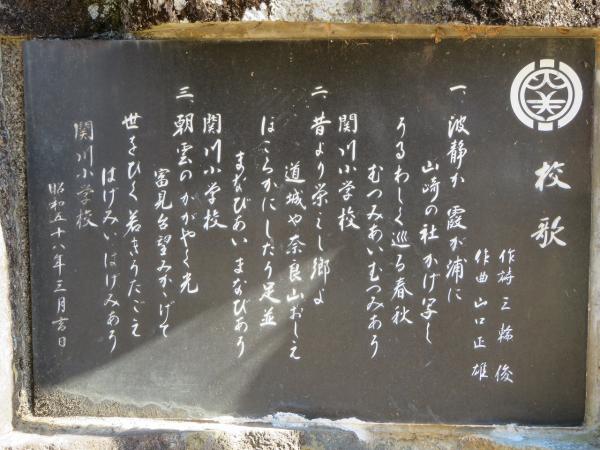 校歌
作詩 三輪 俊
作曲 山口正雄
一、波静か 霞が浦に
山崎の社かげ写し
うるわしく巡る春秋
むつみあいむつみあう
関川小学校
二、昔より栄えし郷よ
道城や奈良山おしえ
ほこらかにしたう足並
まなびあいまなびあう
関川小学校
三、朝雲のかがやく光
富見台望みかかげて
世をひく若きうたごえ
はげみいはげみあう
関川小学校
昭和五十八年三月吉日